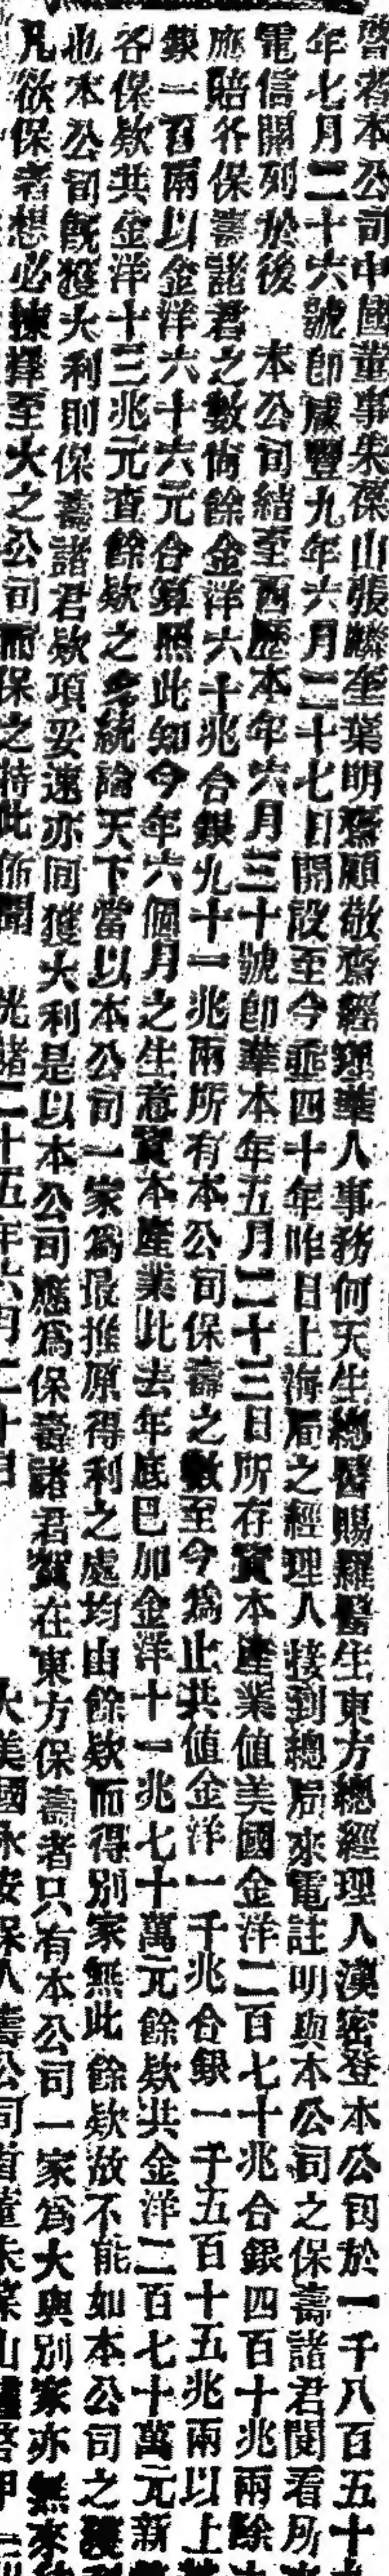 啓者本公司中國董事朱葆山張麟奎葉明齋顧敬齋經理華人事務何天生總醫賜羅醫生東方總經理人漢密登本公司於一千八百五十
年七月二十六號即咸豐九年六月二十七日開設至今垂四十年昨日上海局之經理人接到總局來電註明與本公司之保壽諸君閱看所
電信開列於後 本公司結至西歷本年六月三十號即華本年五月二十三日所存資本產業值美國金洋二百七十兆合銀四百十兆兩除
應賠各保壽諸君之數尚餘金洋六十兆合銀九十一兆兩所有本公司保壽之數至今為止共值金洋一千兆合銀一千五百十五兆兩以上
銀一百兩以金洋六十六元合算照此知今年六個月之生意資本產業比去年底已加金洋十一兆七十萬元餘欵共金洋二百七十萬元新
各保欵共金洋十三兆元查餘欵之多統論天下當以本公司一家為最推原得利之處均由餘欵而得別家無此餘欵故不能如本公司之獲
也本公司旣獲大利則保壽諸君欵項妥速亦同獲大利是以本公司應為保壽諸君賀在東方保壽者只有本公司一家為大與別家亦無來
凡欲保者想必揀擇至大之公司而保之特此佈聞 光緒二十五年六月二十日 大美國永安保人壽公司首董朱葆山